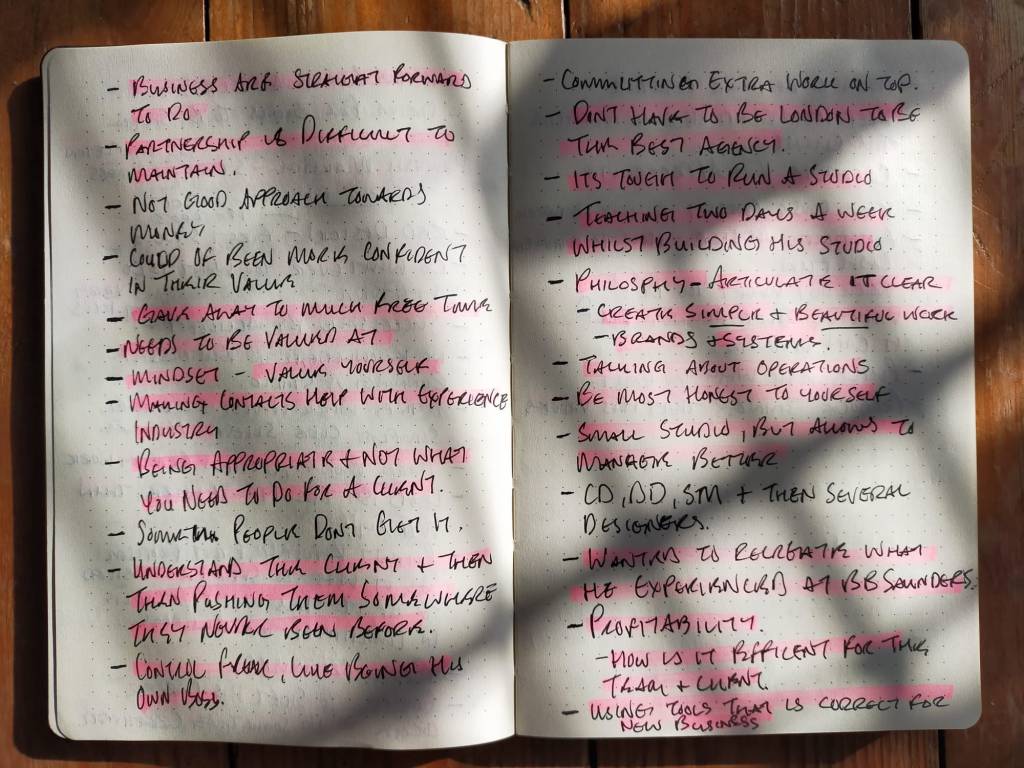 - BUSINESS ARE STRAIGHT FORWARD
TO DO
- PARTNERSHIP IS DIFFICULT TO
MAINTAIN.
- NOT GOOD APPROACH TOWARDS
MONEY
- COULD OF BEEN MORE CONFIDENT
IN THEIR VALUE
- GAVE AWAY TO MUCH FREE TIME
- NEEDS TO BE VALUED AT.
- MINDSET - VALUE YOURSELF
- MAKING CONTACTS HELP WITH EXPERIENCE
INDUSTRY
- BEING APPROPRIATE + NOT WHAT
YOU NEED TO DO FOR A CLIENT.
- SOMETIMES PEOPLE DON'T GET IT.
- UNDERSTAND THE CLIENT + THEN
THEN PUSHING THEM SOMEWHERE
THEY NEVER BEEN BEFORE.
- CONTROL FREAK, LIKE BEING HIS
OWN BOSS.
- COMMITTING EXTRA WORK ON TOP.
- DONT HAVE TO BE LONDON TO BE
THE BEST AGENCY.
- ITS TOUGH TO RUN A STUDIO
- TEACHING TWO DAYS A WEEK
WHILST BUILDING HIS STUDIO.
- PHILOSPHY - ARTICULATE IT CLEAR
- CREATE SIMPLE + BEAUTIFUL WORK
- BRANDS + SYSTEMS.
- TALKING ABOUT OPERATIONS
- BE MOST HONEST TO YOURSELF
- SMALL STUDIO, BUT ALLOWS TO
MANAGE BETTER
- CD, DD, SM + THEN SEVERAL
DESIGNERS.
- WANTED TO RECREATE WHAT
HE EXPERIENCED AT BB SAUNDERS.
- PROFITABILITY.
- HOW IS IT EFFICENT FOR THE
TEAM + CLIENT.
- USING TOOLS THAT IS CORRECT FOR
NEW BUSINESS